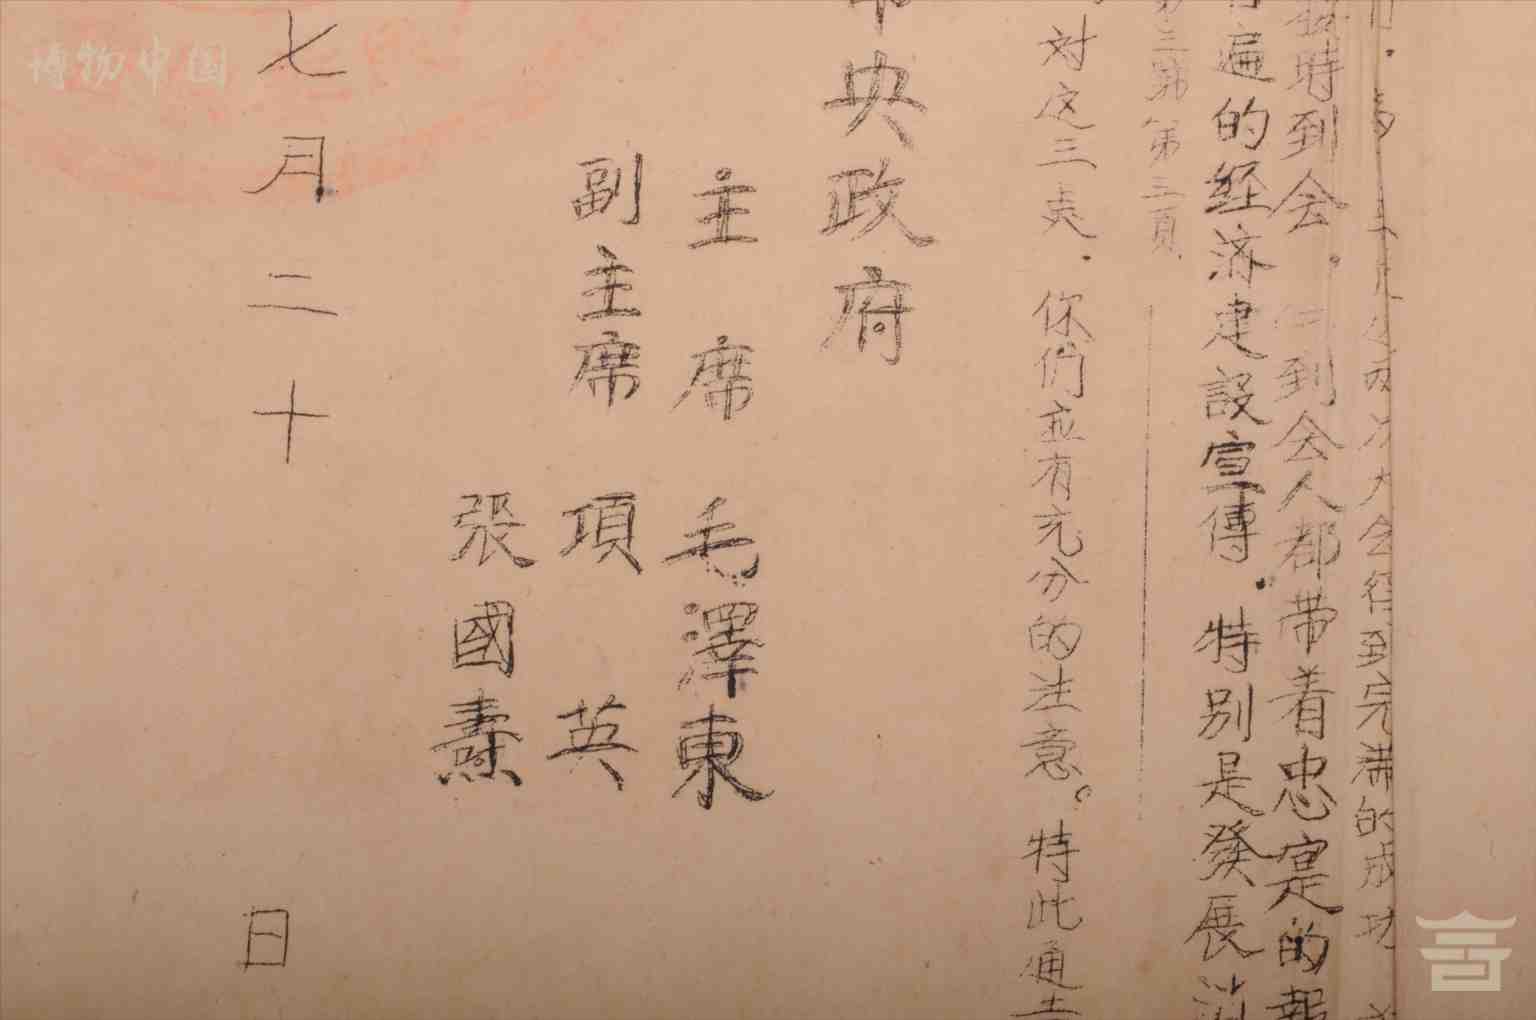 大会得到完满的成功
按時到会.
到会人都带着忠寔的報
遍的经济建設宣傳.特別是發展
第三頁
对这三点.你們应有充分的注意。特此通告
中央政府
主席 毛澤東
副主席 項英
張國燾
七月二十 日
博物中国